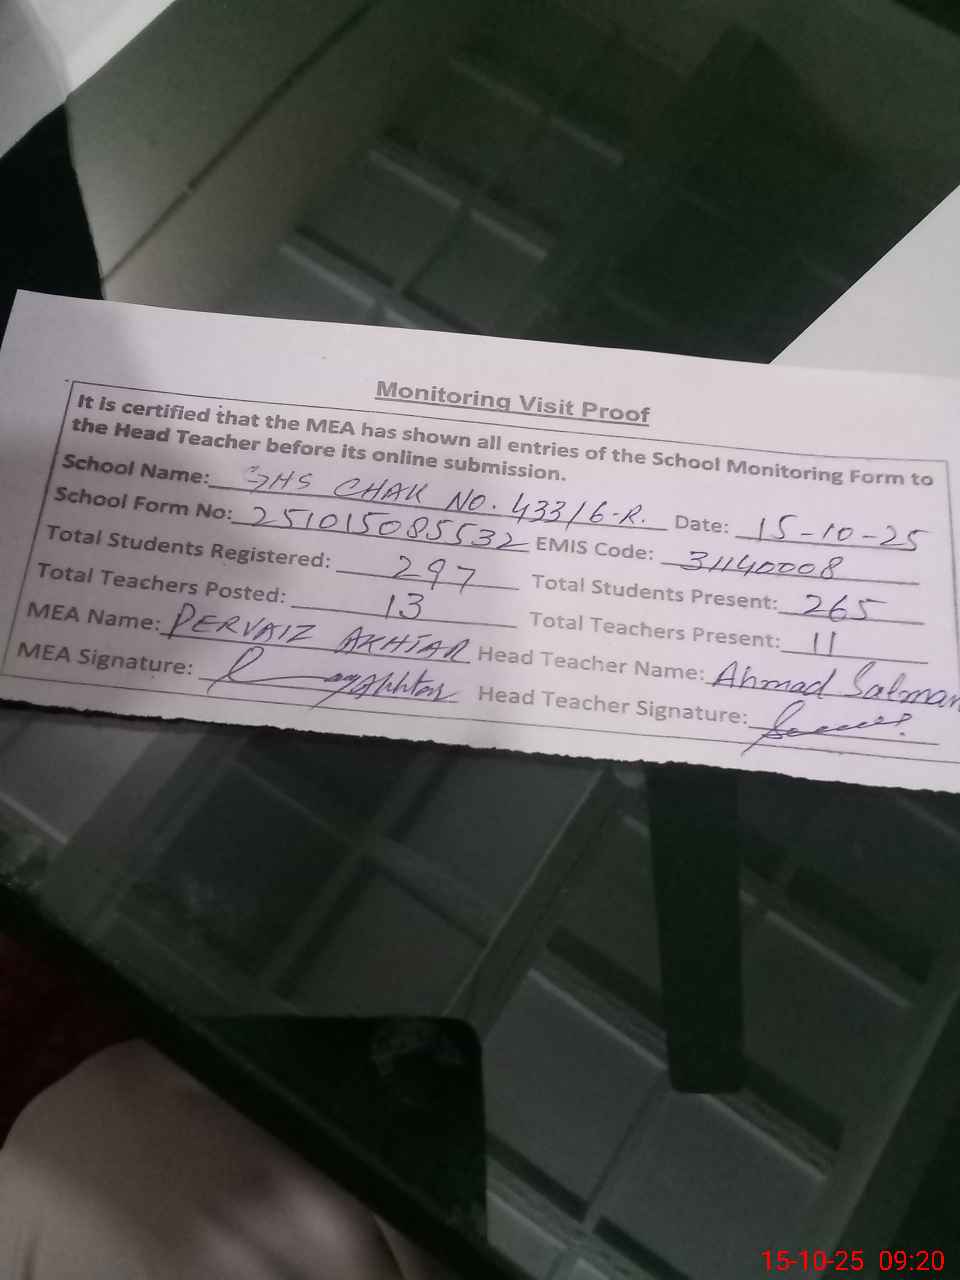 Monitoring Visit Proof
It is certified that the MEA has shown all entries of the School Monitoring Form to
the Head Teacher before its online submission.
School Name: GHS CHAK NO. 433/6-R. Date: 15-10-25
School Form No: 251015085532 EMIS Code: 31140008
Total Students Registered: 297 Total Students Present: 265
Total Teachers Posted: 13 Total Teachers Present: 11
MEA Name: PERVAIZ AKHTAR Head Teacher Name: Ahmad Salman
MEA Signature: Akhtar Head Teacher Signature:
15-10-25 09:20